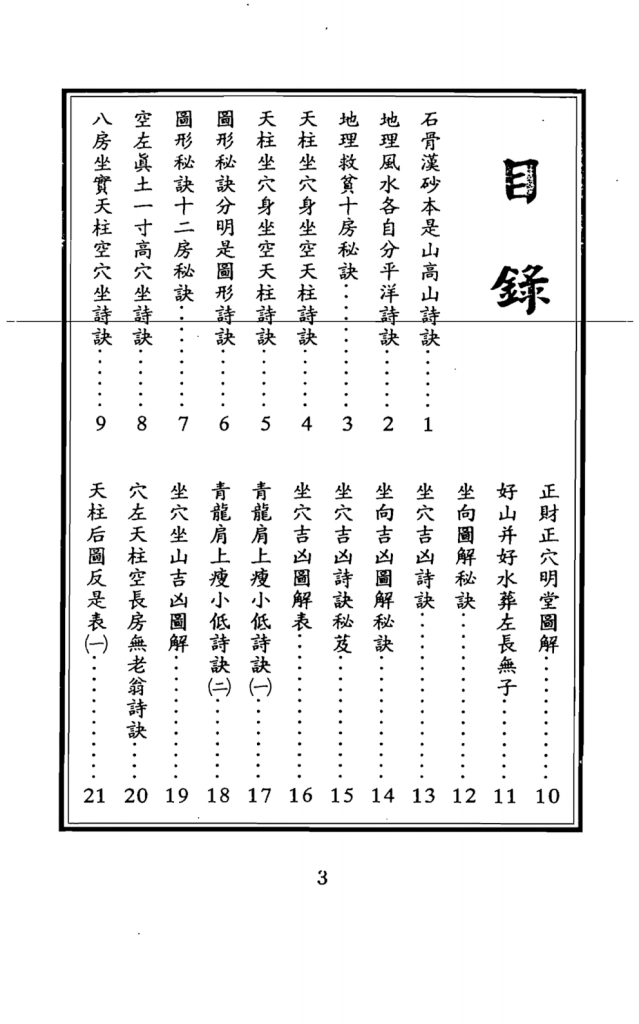 目錄
石骨漢砂本是山高山詩訣⋯⋯⋯1
地理風水各自分平洋詩訣⋯⋯⋯2
地理救貧十房秘訣⋯⋯⋯3
天柱坐穴身坐空天柱詩訣⋯⋯⋯4
天柱坐穴身坐空天柱詩訣⋯⋯⋯5
圖形秘訣分明是圖形詩訣⋯⋯⋯6
圖形秘訣十二房秘訣⋯⋯⋯7
空左眞土一寸高穴坐詩訣⋯⋯⋯8
八房坐實天柱空穴坐詩訣⋯⋯⋯9
正財正穴明堂圖解⋯⋯⋯10
好山并好水葬左長無子⋯⋯⋯11
坐向圖解秘訣⋯⋯⋯12
坐穴吉凶詩訣⋯⋯⋯13
坐向吉凶圖解秘訣⋯⋯⋯14
坐穴吉凶詩訣秘芨⋯⋯⋯15
坐穴吉凶圖解表⋯⋯⋯16
青龍肩上瘦小低詩訣㈠⋯⋯⋯17
青龍肩上瘦小低詩訣㈡⋯⋯⋯18
坐穴坐山吉凶圖解⋯⋯⋯19
穴左天柱空長房無老翁詩訣⋯⋯⋯20
天柱后圖反是表㈠⋯⋯⋯21
3